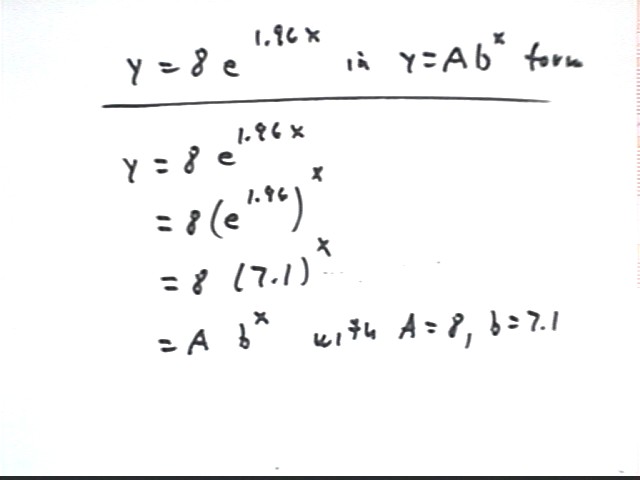 y = 8 e^1.96x in y = A b^x form
y = 8 e^1.96x
= 8 (e^1.96)^x
= 8 (7.1)^x
= A b^x with A = 8, b = 7.1